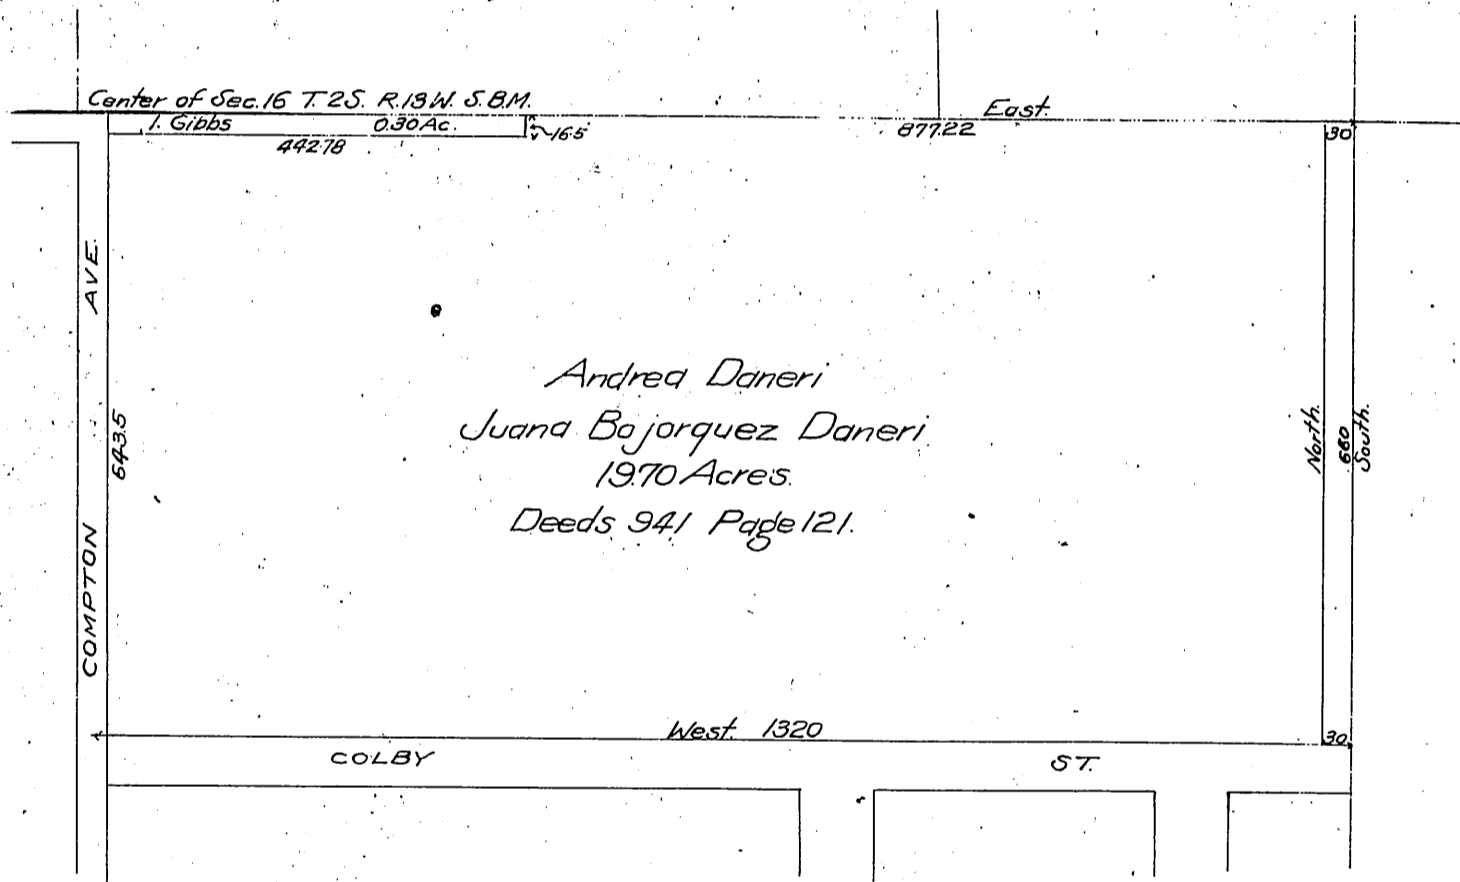 Center of Sec. 16 T. 2S. R. 13W. S.B.M.
East.
I. Gibbs 0.30 Ac.
16.5
877.22
30
442.78
AVE.
COMPTON
643.5
Andrea Daneri
Juana Bojorquez Daneri
19.70 Acres.
Deeds 941 Page 121.
North.
660
South.
West. 1320
30
COLBY ST.